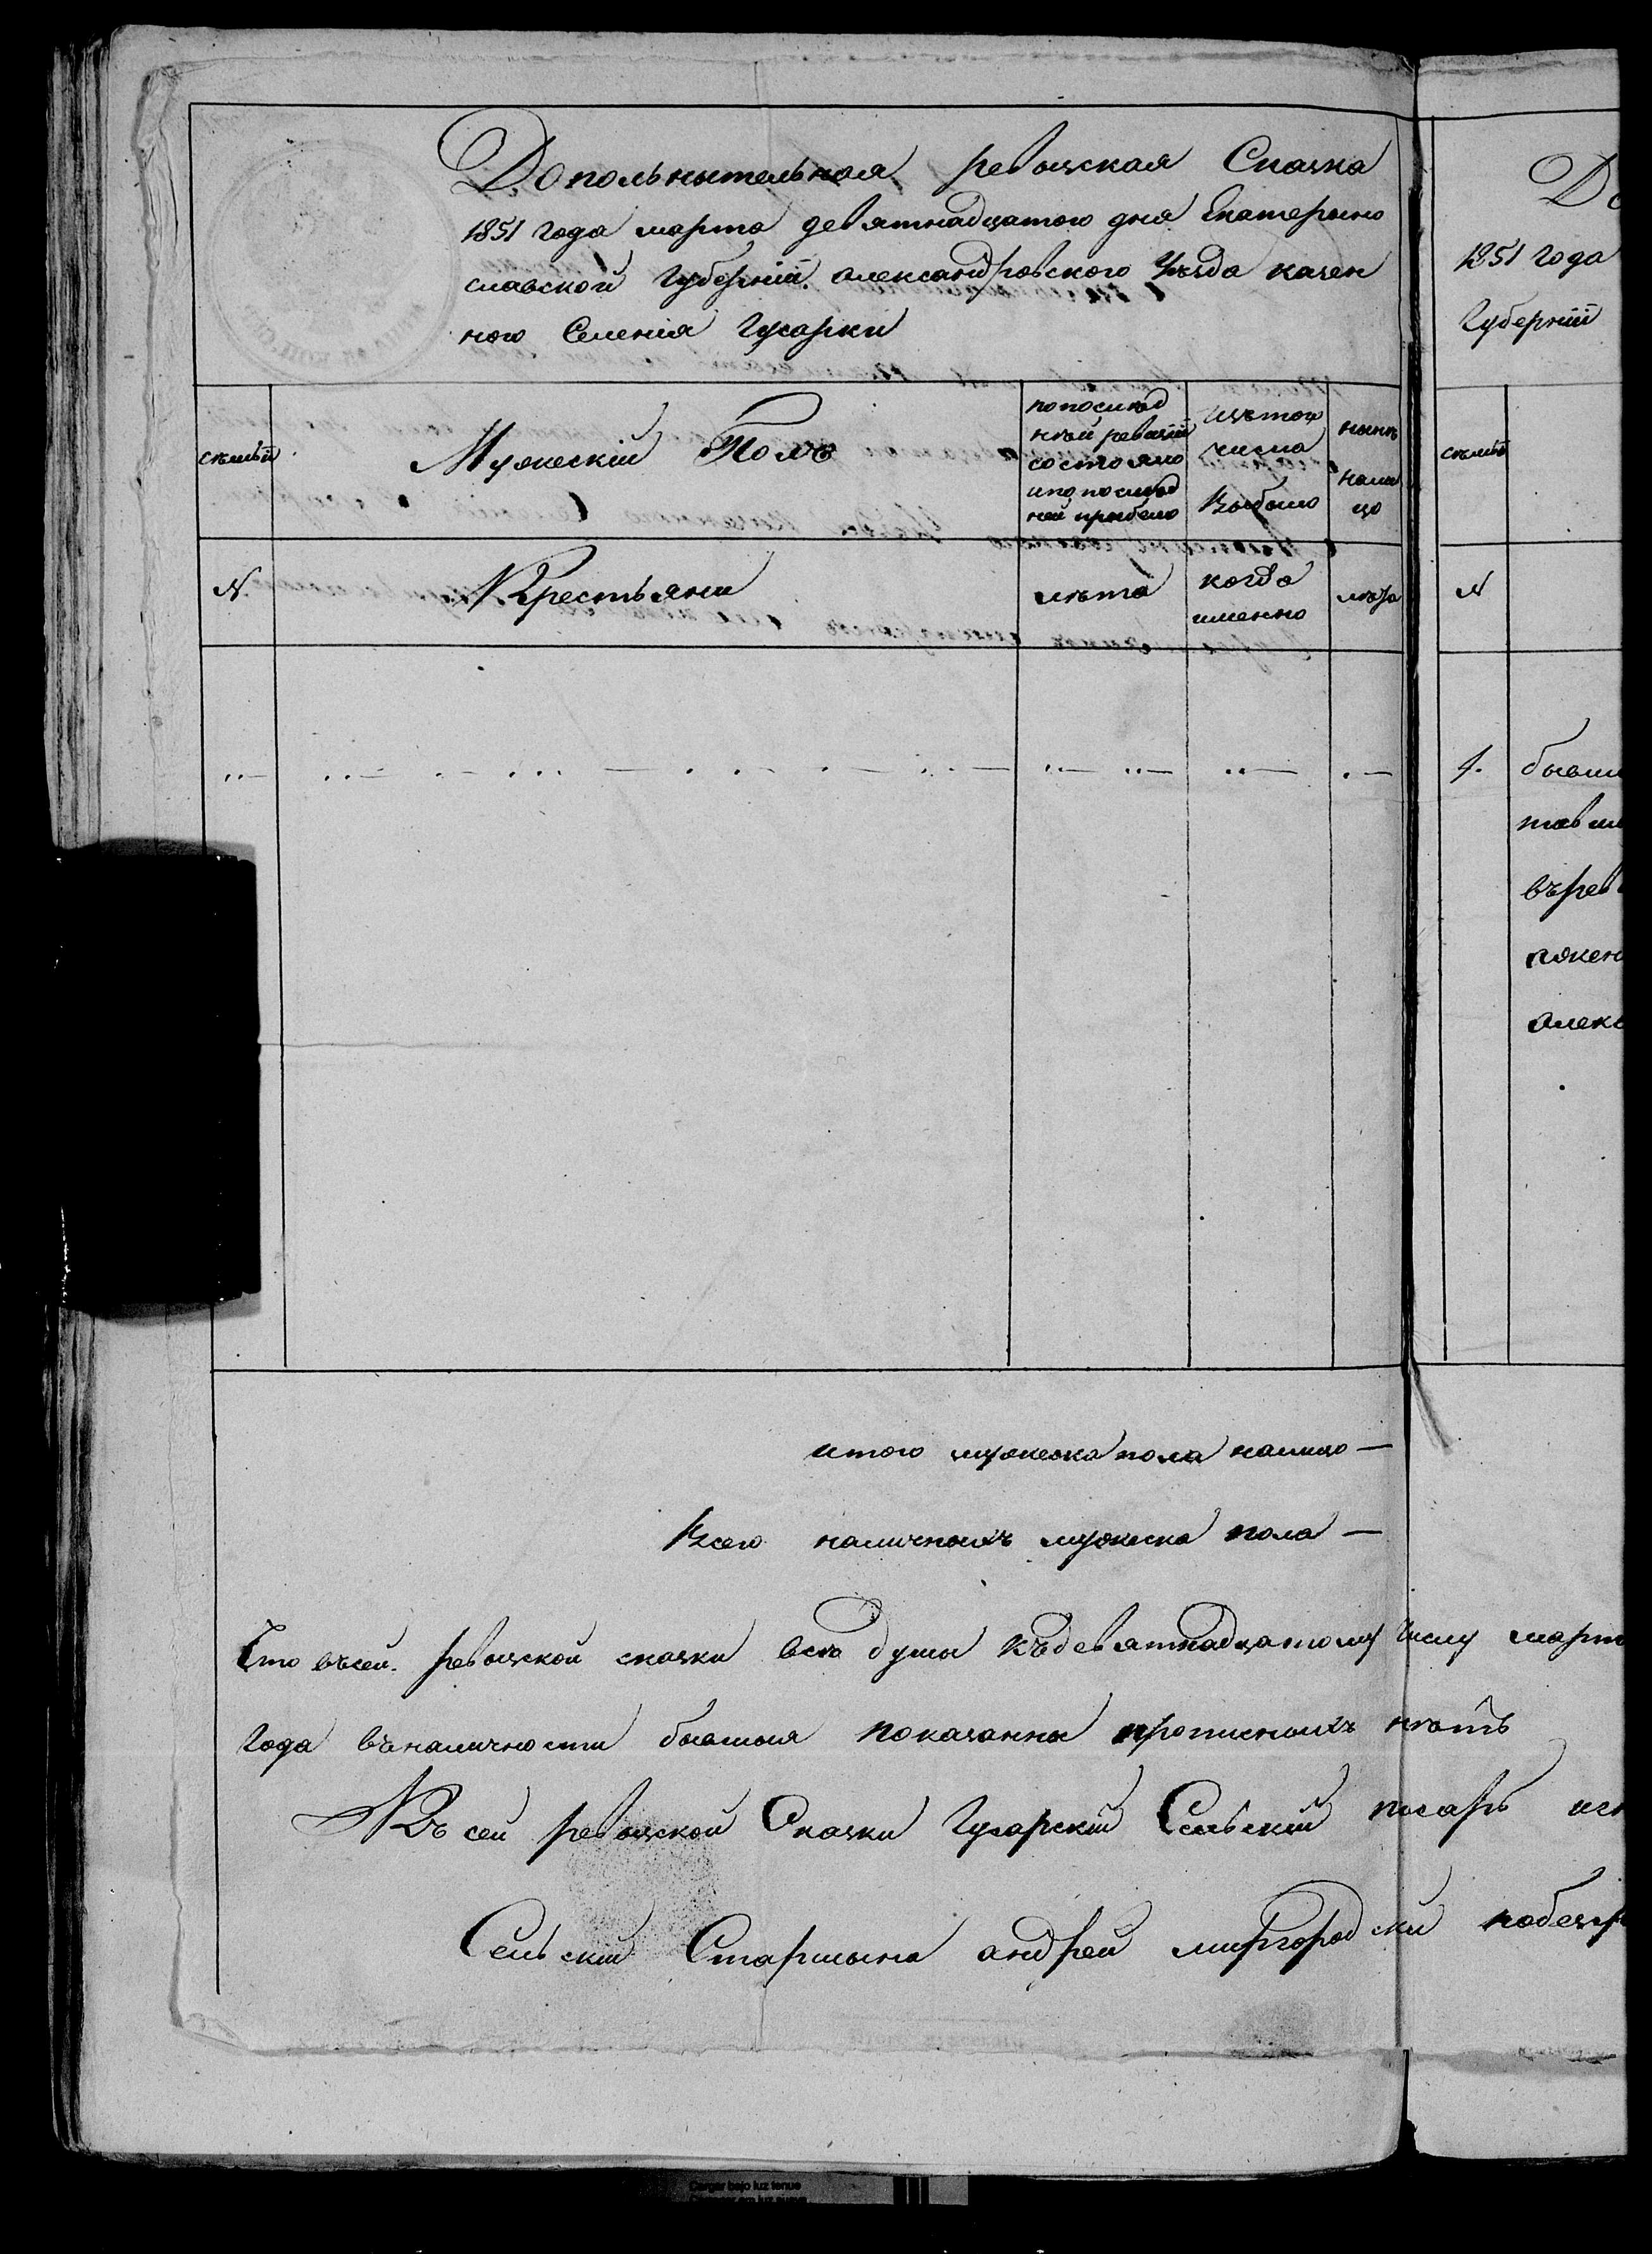 Дополънытельная ревызская Сказка
1851 года марта девятнадцатого дня Екатерыно
славской Губерніи Александровского Уезда казен
ного Селенія Гусарки
съмьй
Мужескій Полъ
попослѣд
нѣй ревизіи
состояло
ипопослѣд
ней прибыло
изътого
числа
выбыло
нынѣ
нали
цо
N.
Крестьяни
лѣта
когда
именно
лѣта
итого мужеска пола налицо —
Всего наличныхъ мужеска пола —
Что въсей ревызской сказки всѣ душы къдевятнадцатому числу марта
года въналичности бывшыя показанны прописныхъ нѣтъ
Къ сей ревызской Сказки Гусарскій Сельскій писарь
Сельскій Старшына андрей миргородски
До
1851 года
Губерніи
съмьй
N
1.
бывш
тавш
въ рев
пожен
Алекс